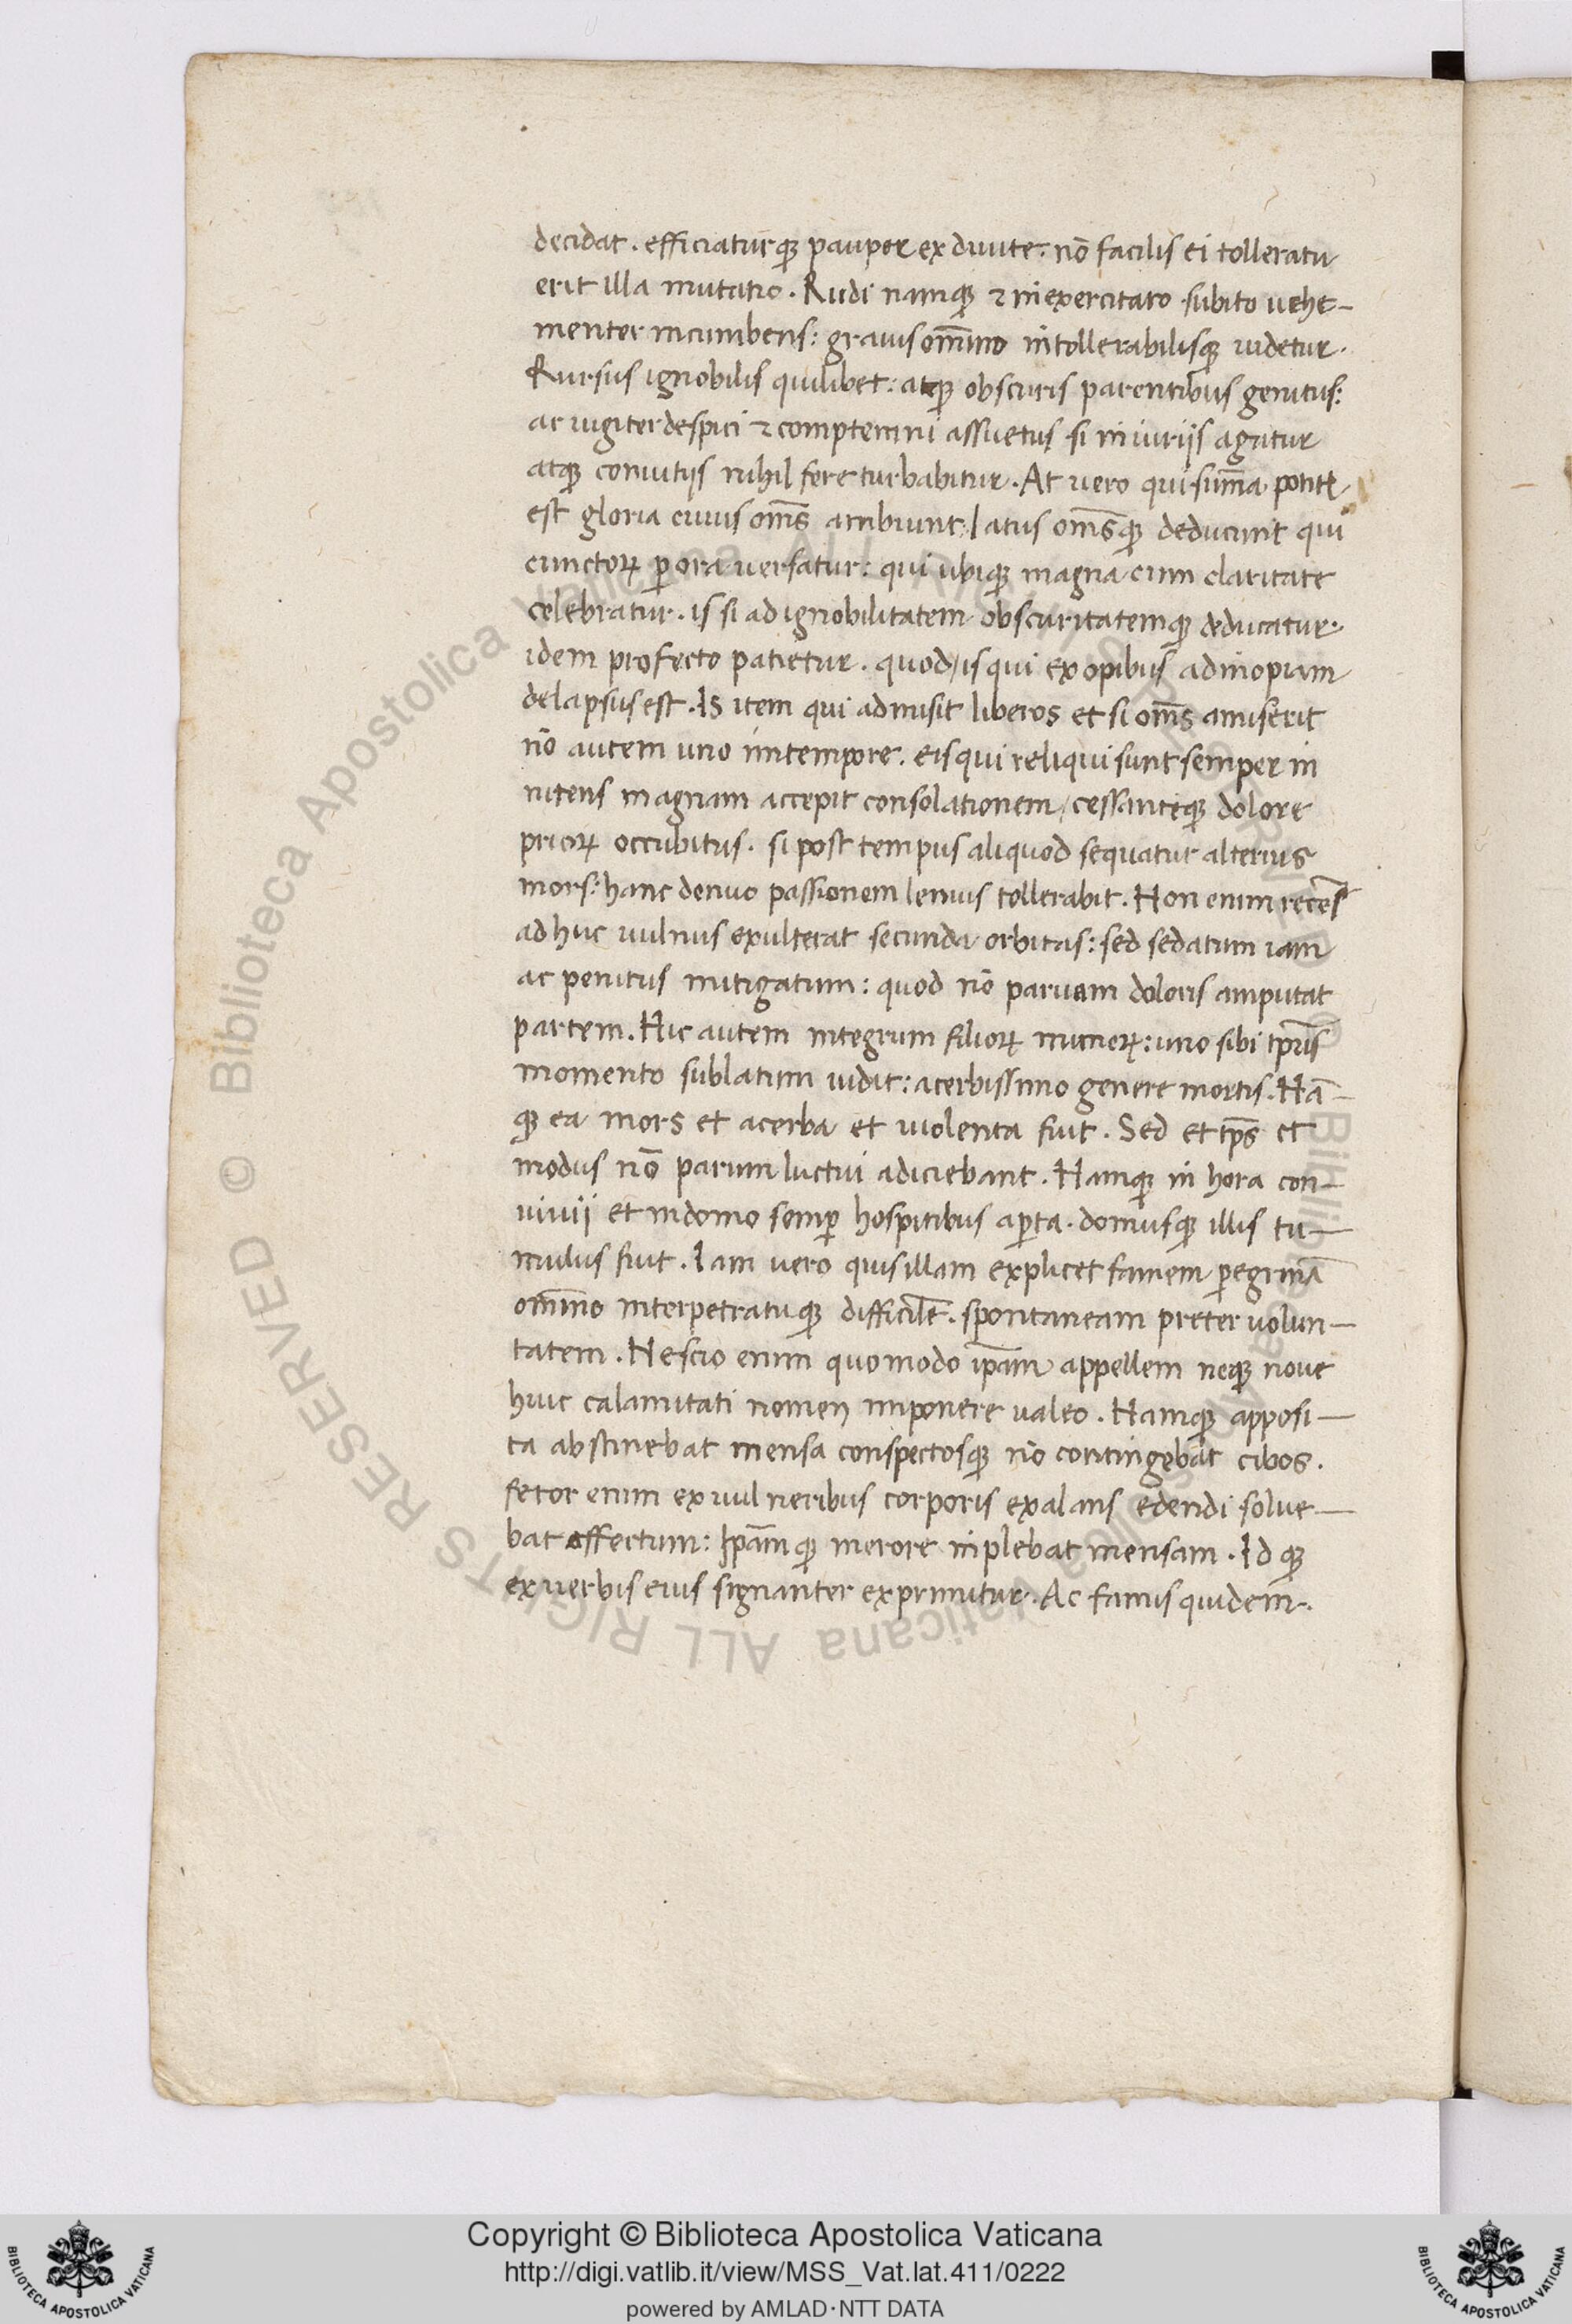 decidat. efficiaturqꝫ pauper ex diuite. nō facilis ei tolleratu
erit illa mutatio. Rudi namqꝫ ⁊ inexercitato subito uehe-
menter incumbens: grauis om̄ino intollerabilisqꝫ uidetur.
Rursus ignobilis quilibet: atqꝫ obscuris parentibus genitus:
ac iugiter despici ⁊ comptemni assuetus si iniuriis agatur
atqꝫ conuitiis nihil fere turbabitur. At uero qui sum̄a potitꝰ
est gloria cuius om̄s ambiunt latus om̄sqꝫ deducunt qui
cunctoꝝ ꝑ ora uersatur: qui ubiqꝫ magna cum claritate
celebratur. is si ad ignobilitatem obscuritatemqꝫ deducatur.
idem profecto patietur. quod / is qui ex opibus ad inopiam
delapsus est. Is item qui admisit liberos et si om̄s amiserit
nō autem uno in tempore. eis qui reliqui sunt semper in
nitens magnam accepit consolationem / cessanteqꝫ dolore
prioꝝ occubitus. si post tempus aliquod sequatur alterius
mors: hanc denuo passionem lenius tollerabit. Non enim recēs
adhuc uulnus exulcerat secunda orbitas: sed sedatum iam
ac penitus mitigatum: quod nō paruam doloris amputat
partem. Hic autem integrum filioꝝ numeꝝ: uno sibi tp̄ris
momento sublatum uidit: acerbissimo genere mortis. Nā-
qꝫ ea mors et acerba et uiolenta fuit. Sed et tp̄s et
modus nō parum luctui adiciebant. Namqꝫ in hora con-
uiuii et in domo semꝑ hospitibus aꝑta. domusqꝫ illis tu-
mulus fuit. Iam uero quis illam explicet famem ꝑegrinā
om̄ino interpetratuqꝫ difficilē. spontaneam preter uolun-
tatem. Nescio enim quomodo ip̄am appellem neqꝫ noue
huic calamitati nomen imponere ualeo. Namqꝫ apposi-
ta abstinebat mensa conspectosqꝫ nō contingebat cibos.
fetor enim ex uulneribus corporis exalans edendi solue-
bat affectum: Ip̄amqꝫ merore inplebat mensam. Id qꝫ
ex uerbis eius signanter exprimitur. Ac famis quidem.
© Biblioteca Apostolica Vaticana ALL RIGHTS RESERVED
Copyright © Biblioteca Apostolica Vaticana
http://digi.vatlib.it/view/MSS_Vat.lat.411/0222
powered by AMLAD·NTT DATA
BIBLIOTECA APOSTOLICA VATICANA
BIBLIOTECA APOSTOLICA VATICANA